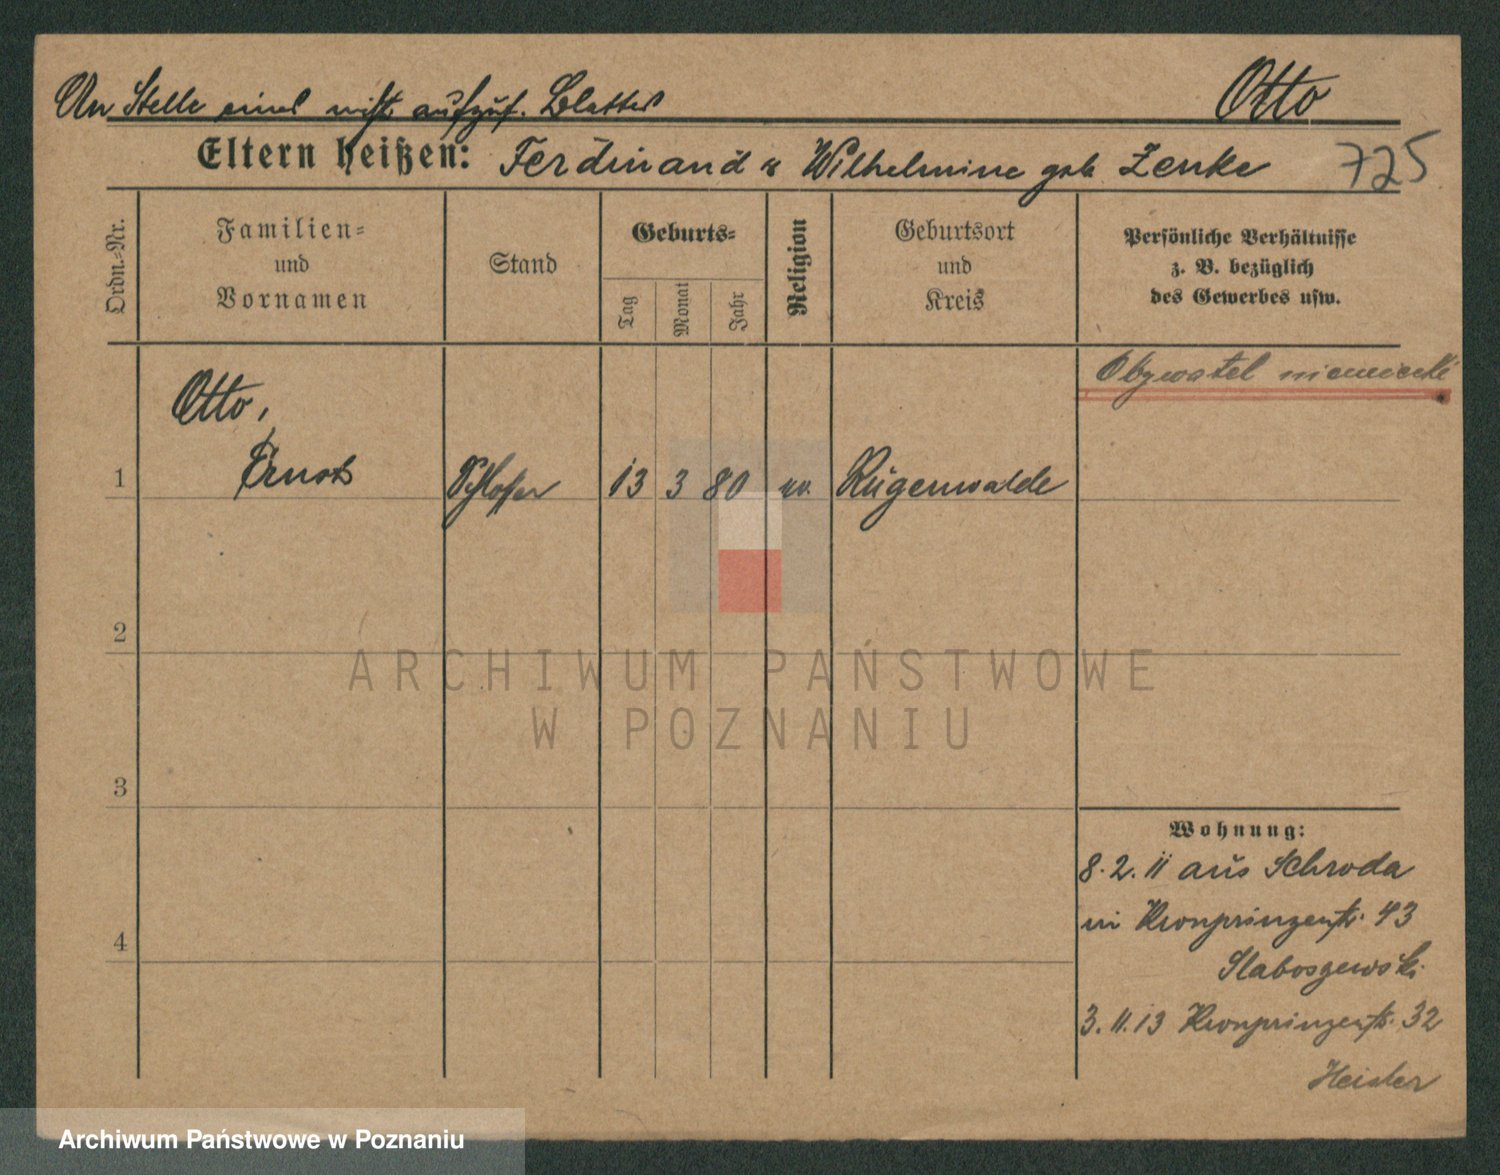 An Stelle eines nicht aufzuf. Blattes
Otto
Eltern heißen: Ferdinand u Wilhelmine geb Zenke
725
Ordn.-Nr.
Familien-
und
Vornamen
Stand
Geburts-
Tag
Monat
Jahr
Religion
Geburtsort
und
Kreis
Persönliche Verhältnisse
z. B. bezüglich
des Gewerbes usw.
Obywatel niemiecki
Otto,
1 Ernst Schlosser 13 3 80 ev. Rügenwalde
2
ARCHIWUM PAŃSTWOWE
W POZNANIU
3
Wohnung:
8.2.11 aus Schroda
in Kronprinzenstr. 43
Slaboszewski
4
3.11.13 Kronprinzenstr. 32
Heisler
Archiwum Państwowe w Poznaniu